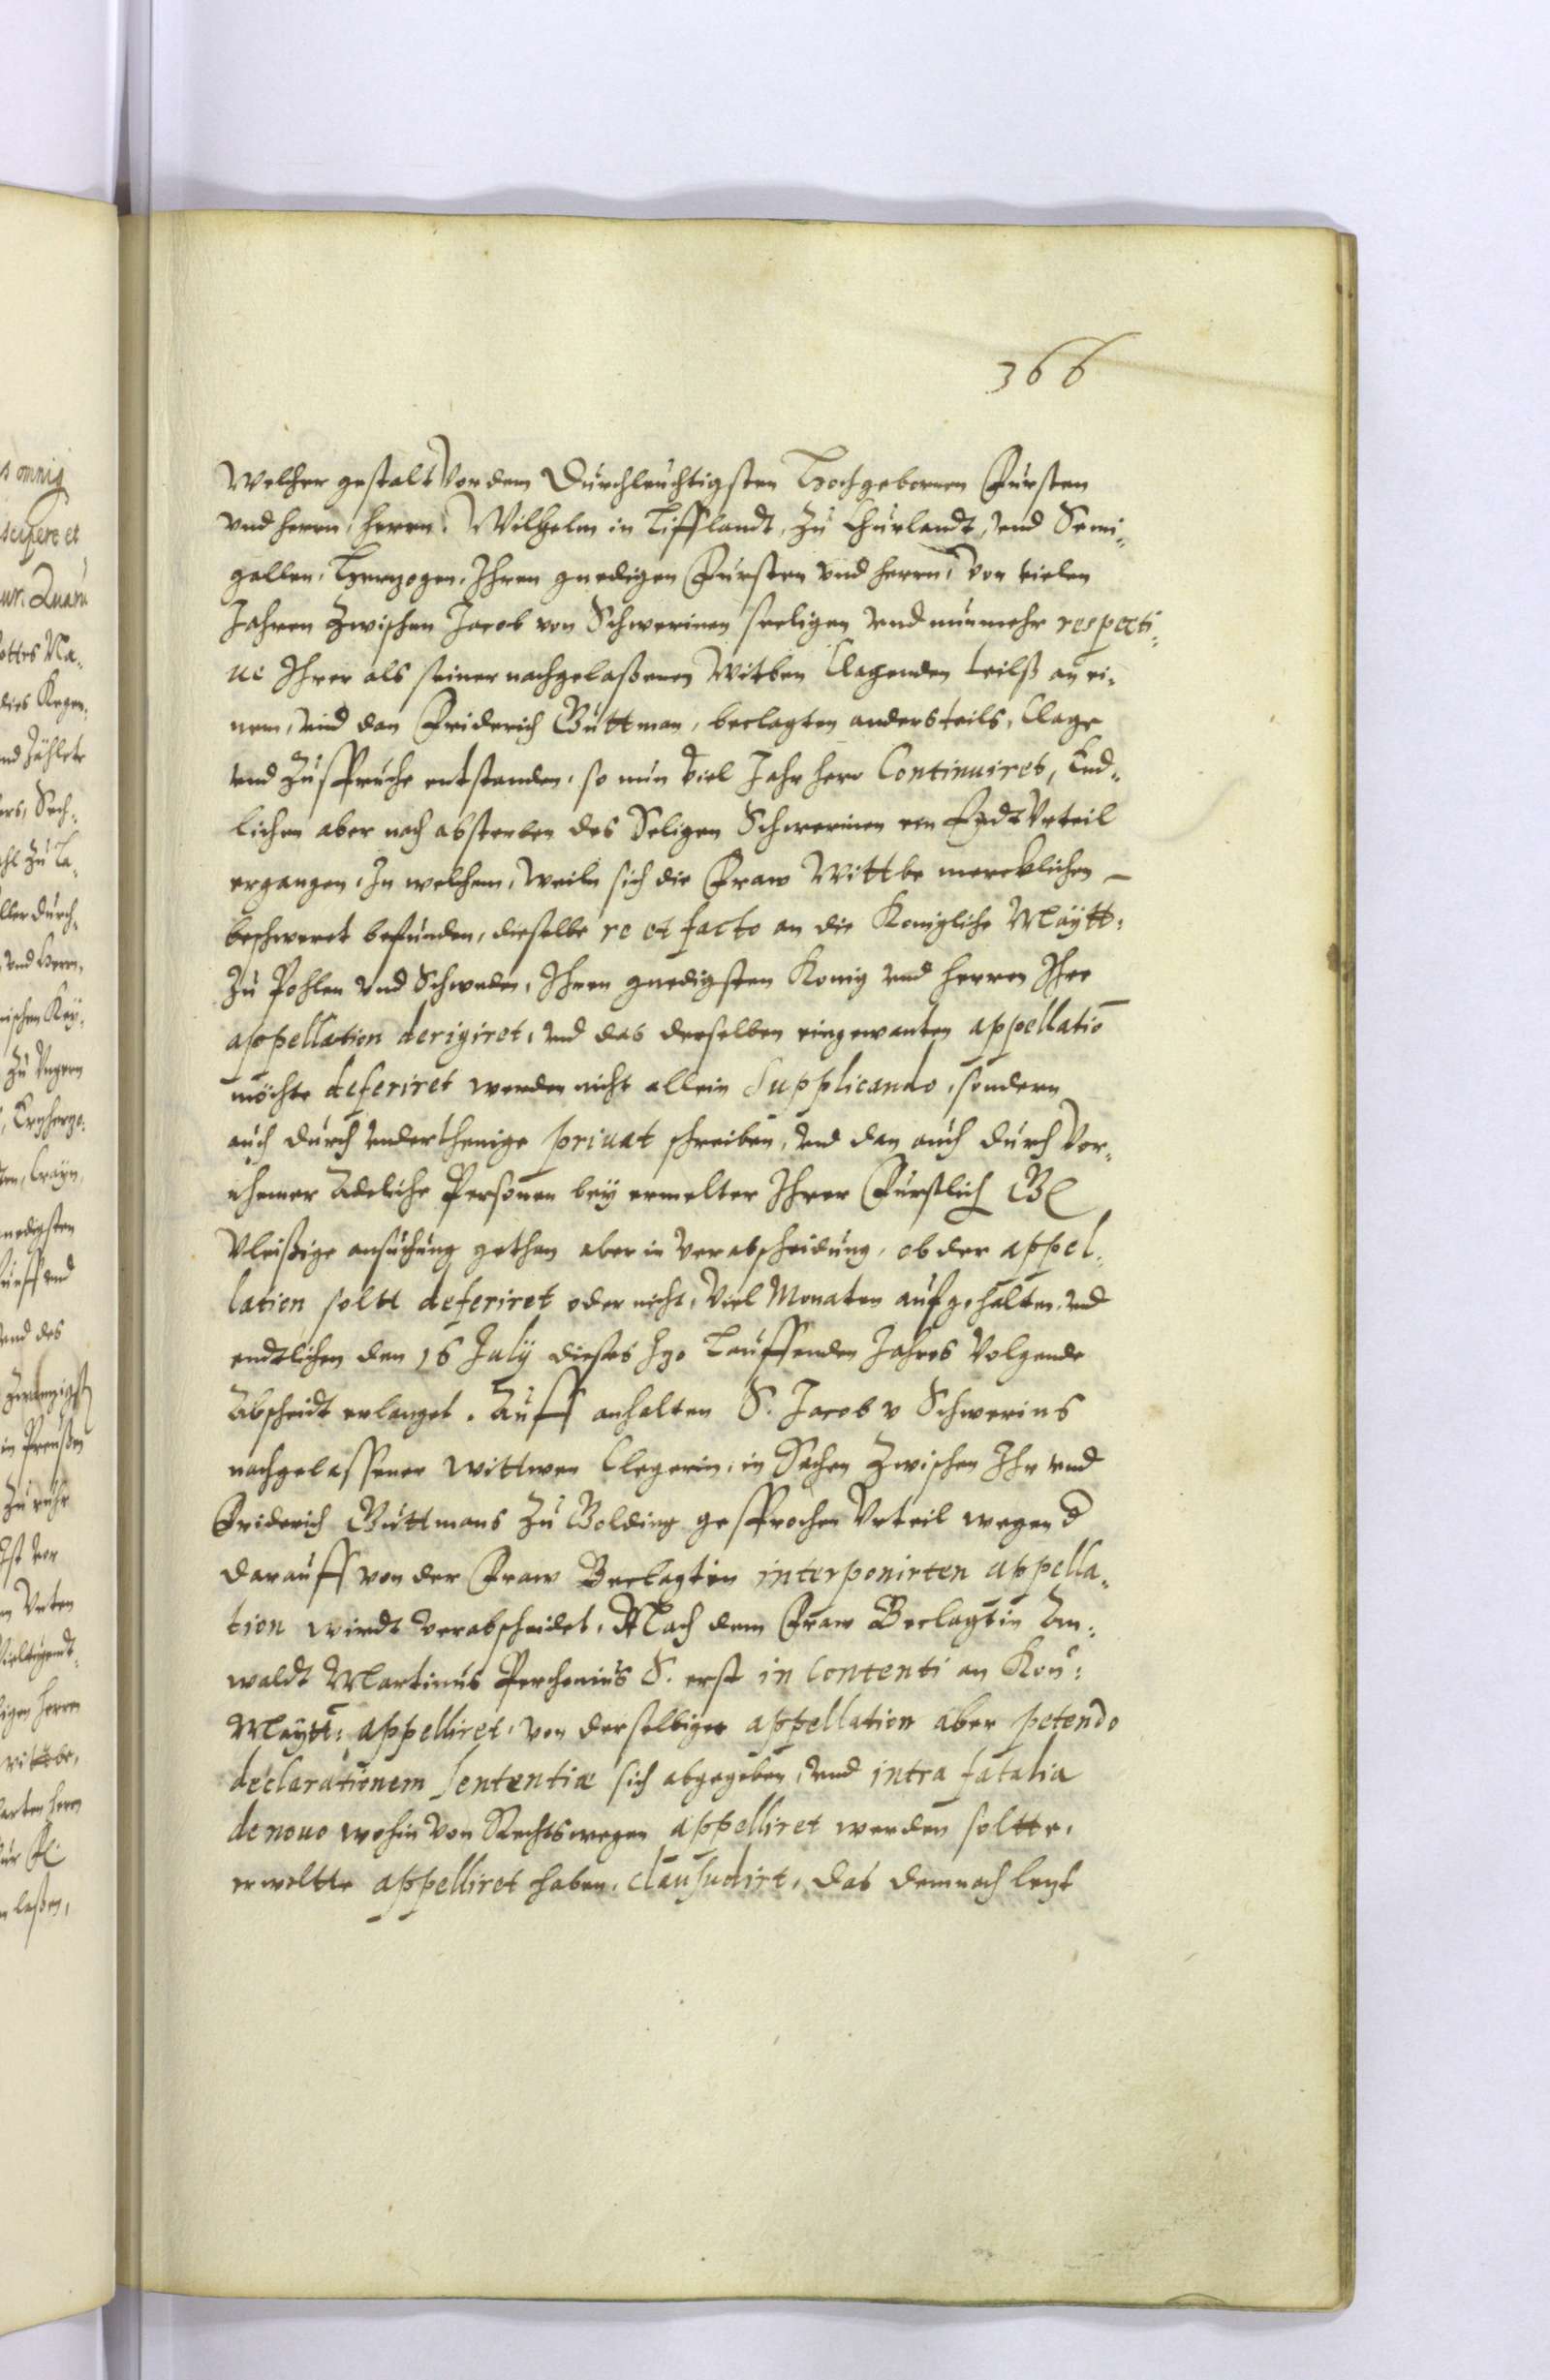 366
Welcher gestalt Vor dem Durchleuchtigsten Hochgebornen Fursten
vnd herrn, herrn. Wilhelm in Liffslandt, zu Churlandt, vnd Semi„
gallen, Herzogen, Ihren gnedigen Fursten vnd herrn, vor vielen
Jahren zwischen Jacob von Schwerinen seeligen vnd nunmehr respecti„
ue Ihrer als seiner nachgelaßenen Witben Clagenden teilß an ei„
nem, vnd dan Friderich Buttman, beclagten andersteils, Clage
vnd zuspruche entstanden, so nun viel Jahr hero Continuiret, End„
lichen aber nach absterben des Seligen Schwerinen ein Endt Vrteil
ergangen, In welchem, weiln sich die Fraw Wittbe mercklichen
beschweret befunden, dieselbe re et facto an die Konigliche Maÿtt:
zu Pohlen vnd Schweden, Ihren gnedigsten Konig vnd herren Ihre
appellation derigiret, vnd das derselben eingewanten appellatiō
möchte deferiret werden nicht allein Supplicando, sondern
auch durch vnderthenige priuat schreiben, vnd dan auch durch Vor„
nhemer Adeliche Personen beÿ ermelter Ihrer Furstlich Gl
Vleißige ansuchung gethan aber in verabscheidung, ob der appel„
lation soltt deferiret oder nicht, Viel Monaten aufgehalten, vnd
endtlichen den 16 Julÿ dieses Izo Lauffenden Jahres Volgende
Abscheidt erlanget. Auff anhalten S. Jacob v Schwerins
nachgelassener wittwen Clegerin, in Sachen zwischen Ihr vnd
Friderich Buttmans zu Golding gesprochen Vrteil wegen d
darauff von der Fraw Beclagtin interponirten appella„
tion wirdt verabscheidet, Nach dem Fraw Beclagtin An„
waldt Martinus S. erst in Contenti an Kön:
Maÿtt: appelliret, von derselbigen appellation aber petendo
declarationem sententiæ sich abgegeben, vnd intra fatalia
denouo wohin von Rechtswegen appelliret werden soltte,
er woltte appelliret haben, das demnach lezt